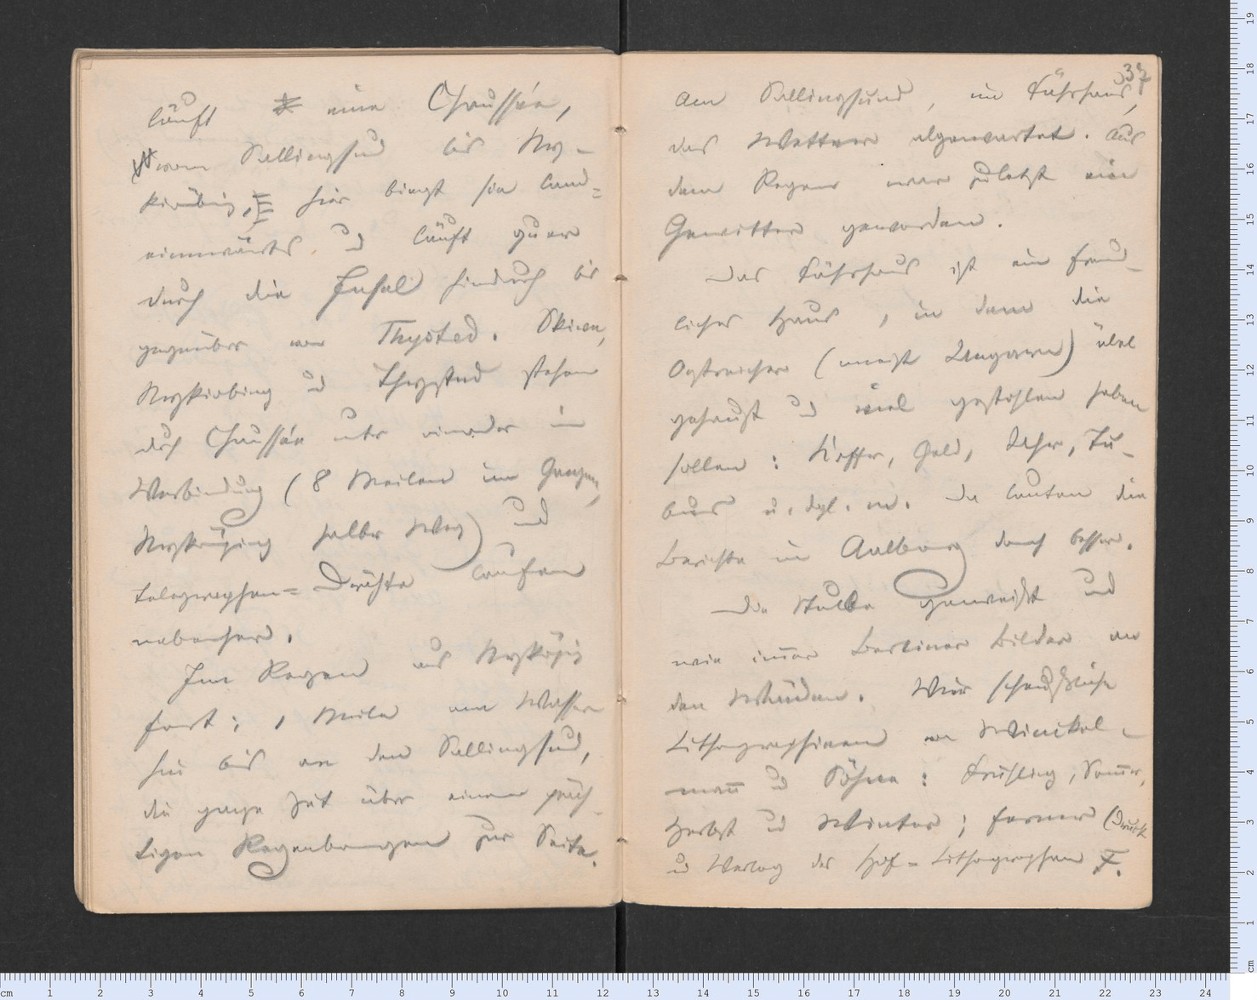 läuft eine Chaussée,
vom Sallingsund bis Ny-
kiöbing, hier biegt sie land-
einwärts und läuft quer
durch die Insel hindurch bis
gegenüber von Thysted. Skive,
Nykiöbing und Thystd stehen
dch Chaussée unter einander in
Verbindung (8 Meilen im Ganzen,
Nykjöping halber Weg) und
Telegraphen-Drähte laufen
nebenher.
Im Regen aus Nykjöpig
fort; 1 Meile am Wasser
hin bis an den Sallingsund,
die ganze Zeit über einen präch-
tigen Regenbogen zur Seite.
37
Am Sallingsund, im Fährhaus,
das Wetter abgewartet. Aus
dem Regen war zuletzt ein
Gewitter geworden.
Das Fährhaus ist ein freund-
liches Haus, in dem die
Oestreicher (meist Ungarn) übel
gehaust und viel gestohlen haben
sollen: Koffer, Geld, Uhr, Tu-
bus u. dgl. m. Da lauten die
Berichte in Aalborg doch besser.
Die Stube geweißt und
wie immer Berliner Bilder an
den Wänden. Vier scheußliche
Lithographieen von Winckel-
mann und Söhne: Frühling, Somer,
Herbst und Winter; ferner (Druck
und Verlag des Hof-Lithographen F.